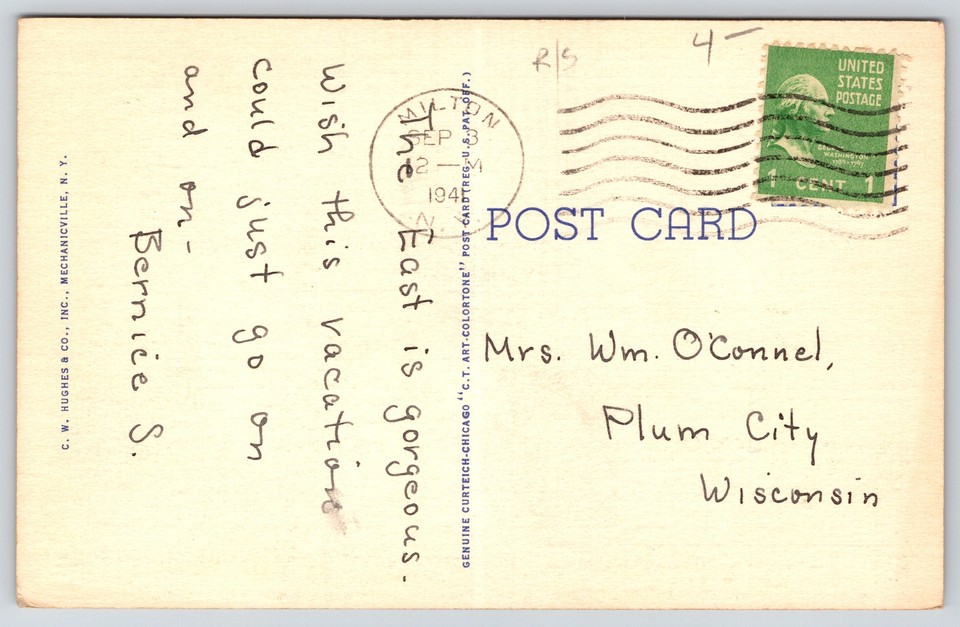 The East is gorgeous.
Wish this vacation
could just go on
and on-
Bernice S.
R/S
4-
MILTON
SEP 3
2-M
194
N.Y.
UNITED
STATES
POSTAGE
GEORGE
WASHINGTON
1789-1797
1 CENT 1
POST CARD
Mrs. Wm. O'Connel,
Plum City
Wisconsin
GENUINE CURTEICH-CHICAGO "C.T. ART-COLORTONE" POST CARD (REG. U.S. PAT. OFF.)
C. W. HUGHES & CO., INC., MECHANICVILLE, N. Y.